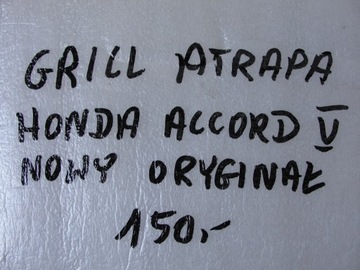 GRILL ATRAPA
HONDA ACCORD V
NOWY ORYGINAŁ
150,-